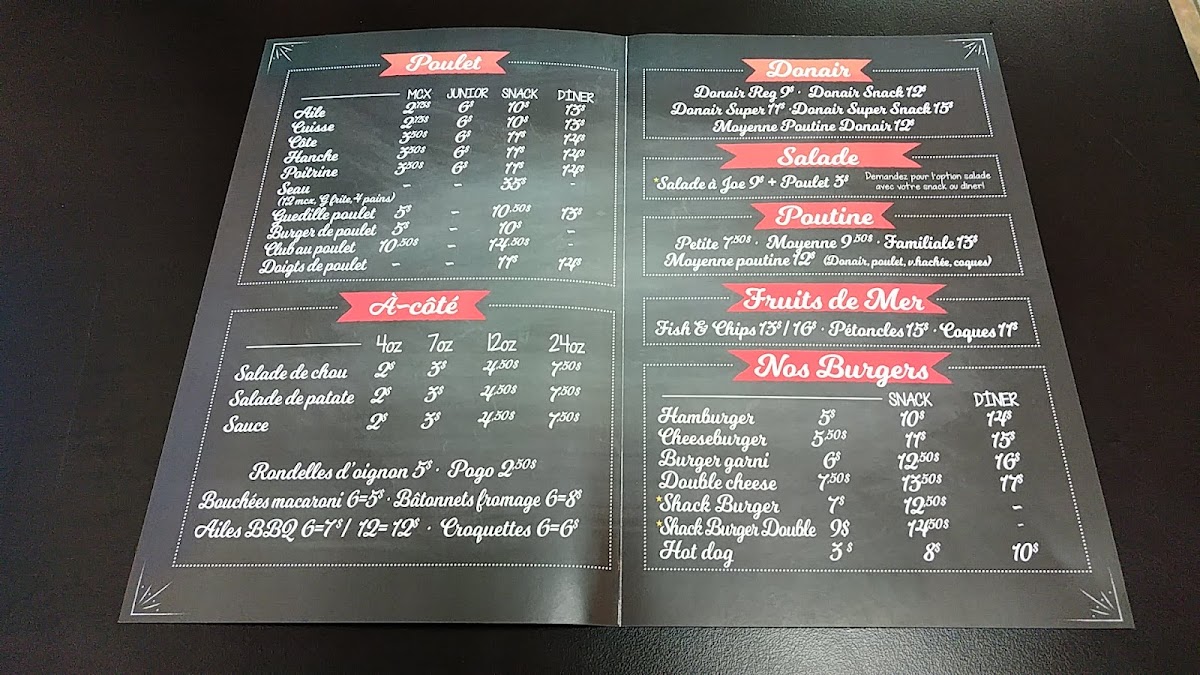 Poulet
MCX JUNIOR SNACK DÎNER
Aile 2.75$ 6$ 10$ 13$
Cuisse 2.75$ 6$ 10$ 13$
Côte 3.50$ 6$ 11$ 14$
Hanche 3.50$ 6$ 11$ 14$
Poitrine 3.50$ 6$ 11$ 14$
Seau - - 35$ -
(12 mcx, G frite, 4 pains)
Guedille poulet 5$ - 10.50$ 13$
Burger de poulet 5$ - 10$ -
Club au poulet 10.50$ - 14.50$ -
Doigts de poulet - - 11$ 14$
À-côté
4oz 7oz 12oz 24oz
Salade de chou 2$ 3$ 4.50$ 7.50$
Salade de patate 2$ 3$ 4.50$ 7.50$
Sauce 2$ 3$ 4.50$ 7.50$
Rondelles d'oignon 5$ · Pogo 2.50$
Bouchées macaroni 6=5$ · Bâtonnets fromage 6=8$
Ailes BBQ 6=7$ / 12=12$ · Croquettes 6=6$
Donair
Donair Reg 9$ · Donair Snack 12$
Donair Super 11$ · Donair Super Snack 15$
Moyenne Poutine Donair 12$
Salade
*Salade à Joe 9$ + Poulet 3$ Demandez pour l'option salade
avec votre snack ou diner!
Poutine
Petite 7.50$ · Moyenne 9.50$ · Familiale 13$
Moyenne poutine 12$ (Donair, poulet, v.hachée, coques)
Fruits de Mer
Fish & Chips 13$ / 16$ · Pétoncles 15$ · Coques 11$
Nos Burgers
SNACK DÎNER
Hamburger 5$ 10$ 14$
Cheeseburger 5.50$ 11$ 15$
Burger garni 6$ 12.50$ 16$
Double cheese 7.50$ 13.50$ 17$
*Shack Burger 7$ 12.50$ -
*Shack Burger Double 9$ 14.50$ -
Hot dog 3$ 8$ 10$